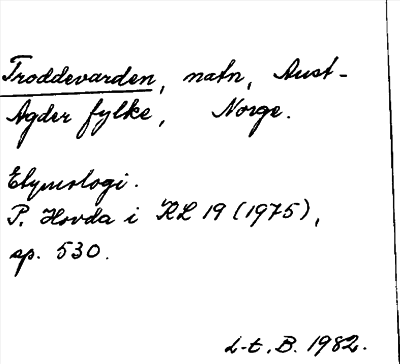 Troddevarden, natn, Aust-
Agder fylke, Norge.
Etymologi.
P. Hovda i KL 19 (1975),
sp. 530.
L-t. B. 1982.